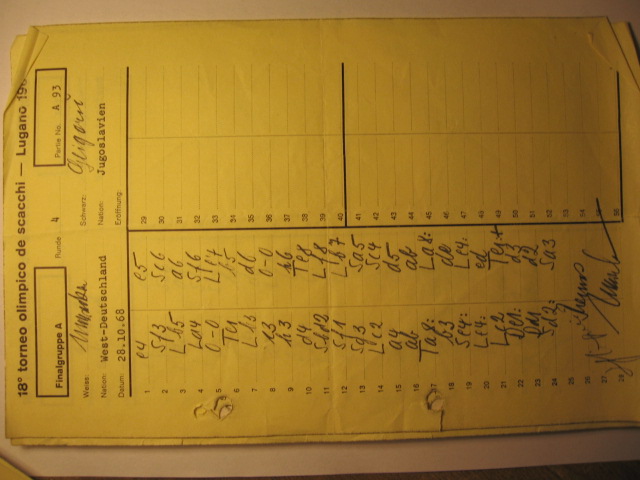 18° torneo olimpico de scacchi — Lugano 196
Finalgruppe A Runde 4 Partie No. A 93
Weiss: Unzicker Schwarz: Gligorić
Nation: West-Deutschland Nation: Jugoslavien
Datum: 28.10.68 Eröffnung:
1 e4 e5 29
2 Sf3 Sc6 30
3 Lb5 a6 31
4 La4 Sf6 32
5 0-0 Le7 33
6 Te1 b5 34
7 Lb3 d6 35
8 c3 0-0 36
9 h3 h6 37
10 d4 Te8 38
11 Sbd2 Lf8 39
12 Sf1 Lb7 40
13 Sg3 Sa5 41
14 Lc2 Sc4 42
15 a4 d5 43
16 ab ab 44
17 Ta8: La8: 45
18 b3 de 46
19 Se4: Le4: 47
20 Le4: ed 48
21 Lc2 Te1+ 49
22 De1: d3 50
23 Dd1 d2 51
24 Sd2: Sa3 52
25 53
26 54
27 55
28 56